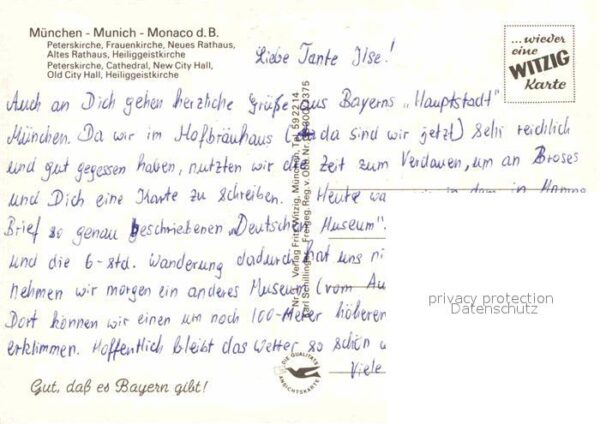 München - Munich - Monaco d. B.
Peterskirche, Frauenkirche, Neues Rathaus,
Altes Rathaus, Heiliggeistkirche
Peterskirche, Cathedral, New City Hall,
Old City Hall, Heiliggeistkirche
...wieder
eine
WITZIG
Karte
Liebe Tante Ilse!
Auch an Dich gehen herzliche Grüße aus Bayerns „Hauptstadt"
München. Da wir im Hofbräuhaus (da sind wir jetzt) sehr reichlich
und gut gegessen haben, nutzten wir die Zeit zum Verdauen, um an Broses
und Dich eine Karte zu schreiben. Heute in dem in
Brief so genau beschriebenen „Deutschen Museum".
und die 6-std. Wanderung dadurch hat uns
nehmen wir morgen ein anderes Museum (vom
Dort können wir einen um noch 100-Meter höheren
erklimmen. Hoffentlich bleibt das Wetter so schön
Viele
Gut, daß es Bayern gibt!
DIE QUALITÄTS
ANSICHTSKARTE
Verlag Fritz Witzig, München, 592214
Karl Schillinger Freigeg. Reg. v. Obb. Nr.
privacy protection
Datenschutz